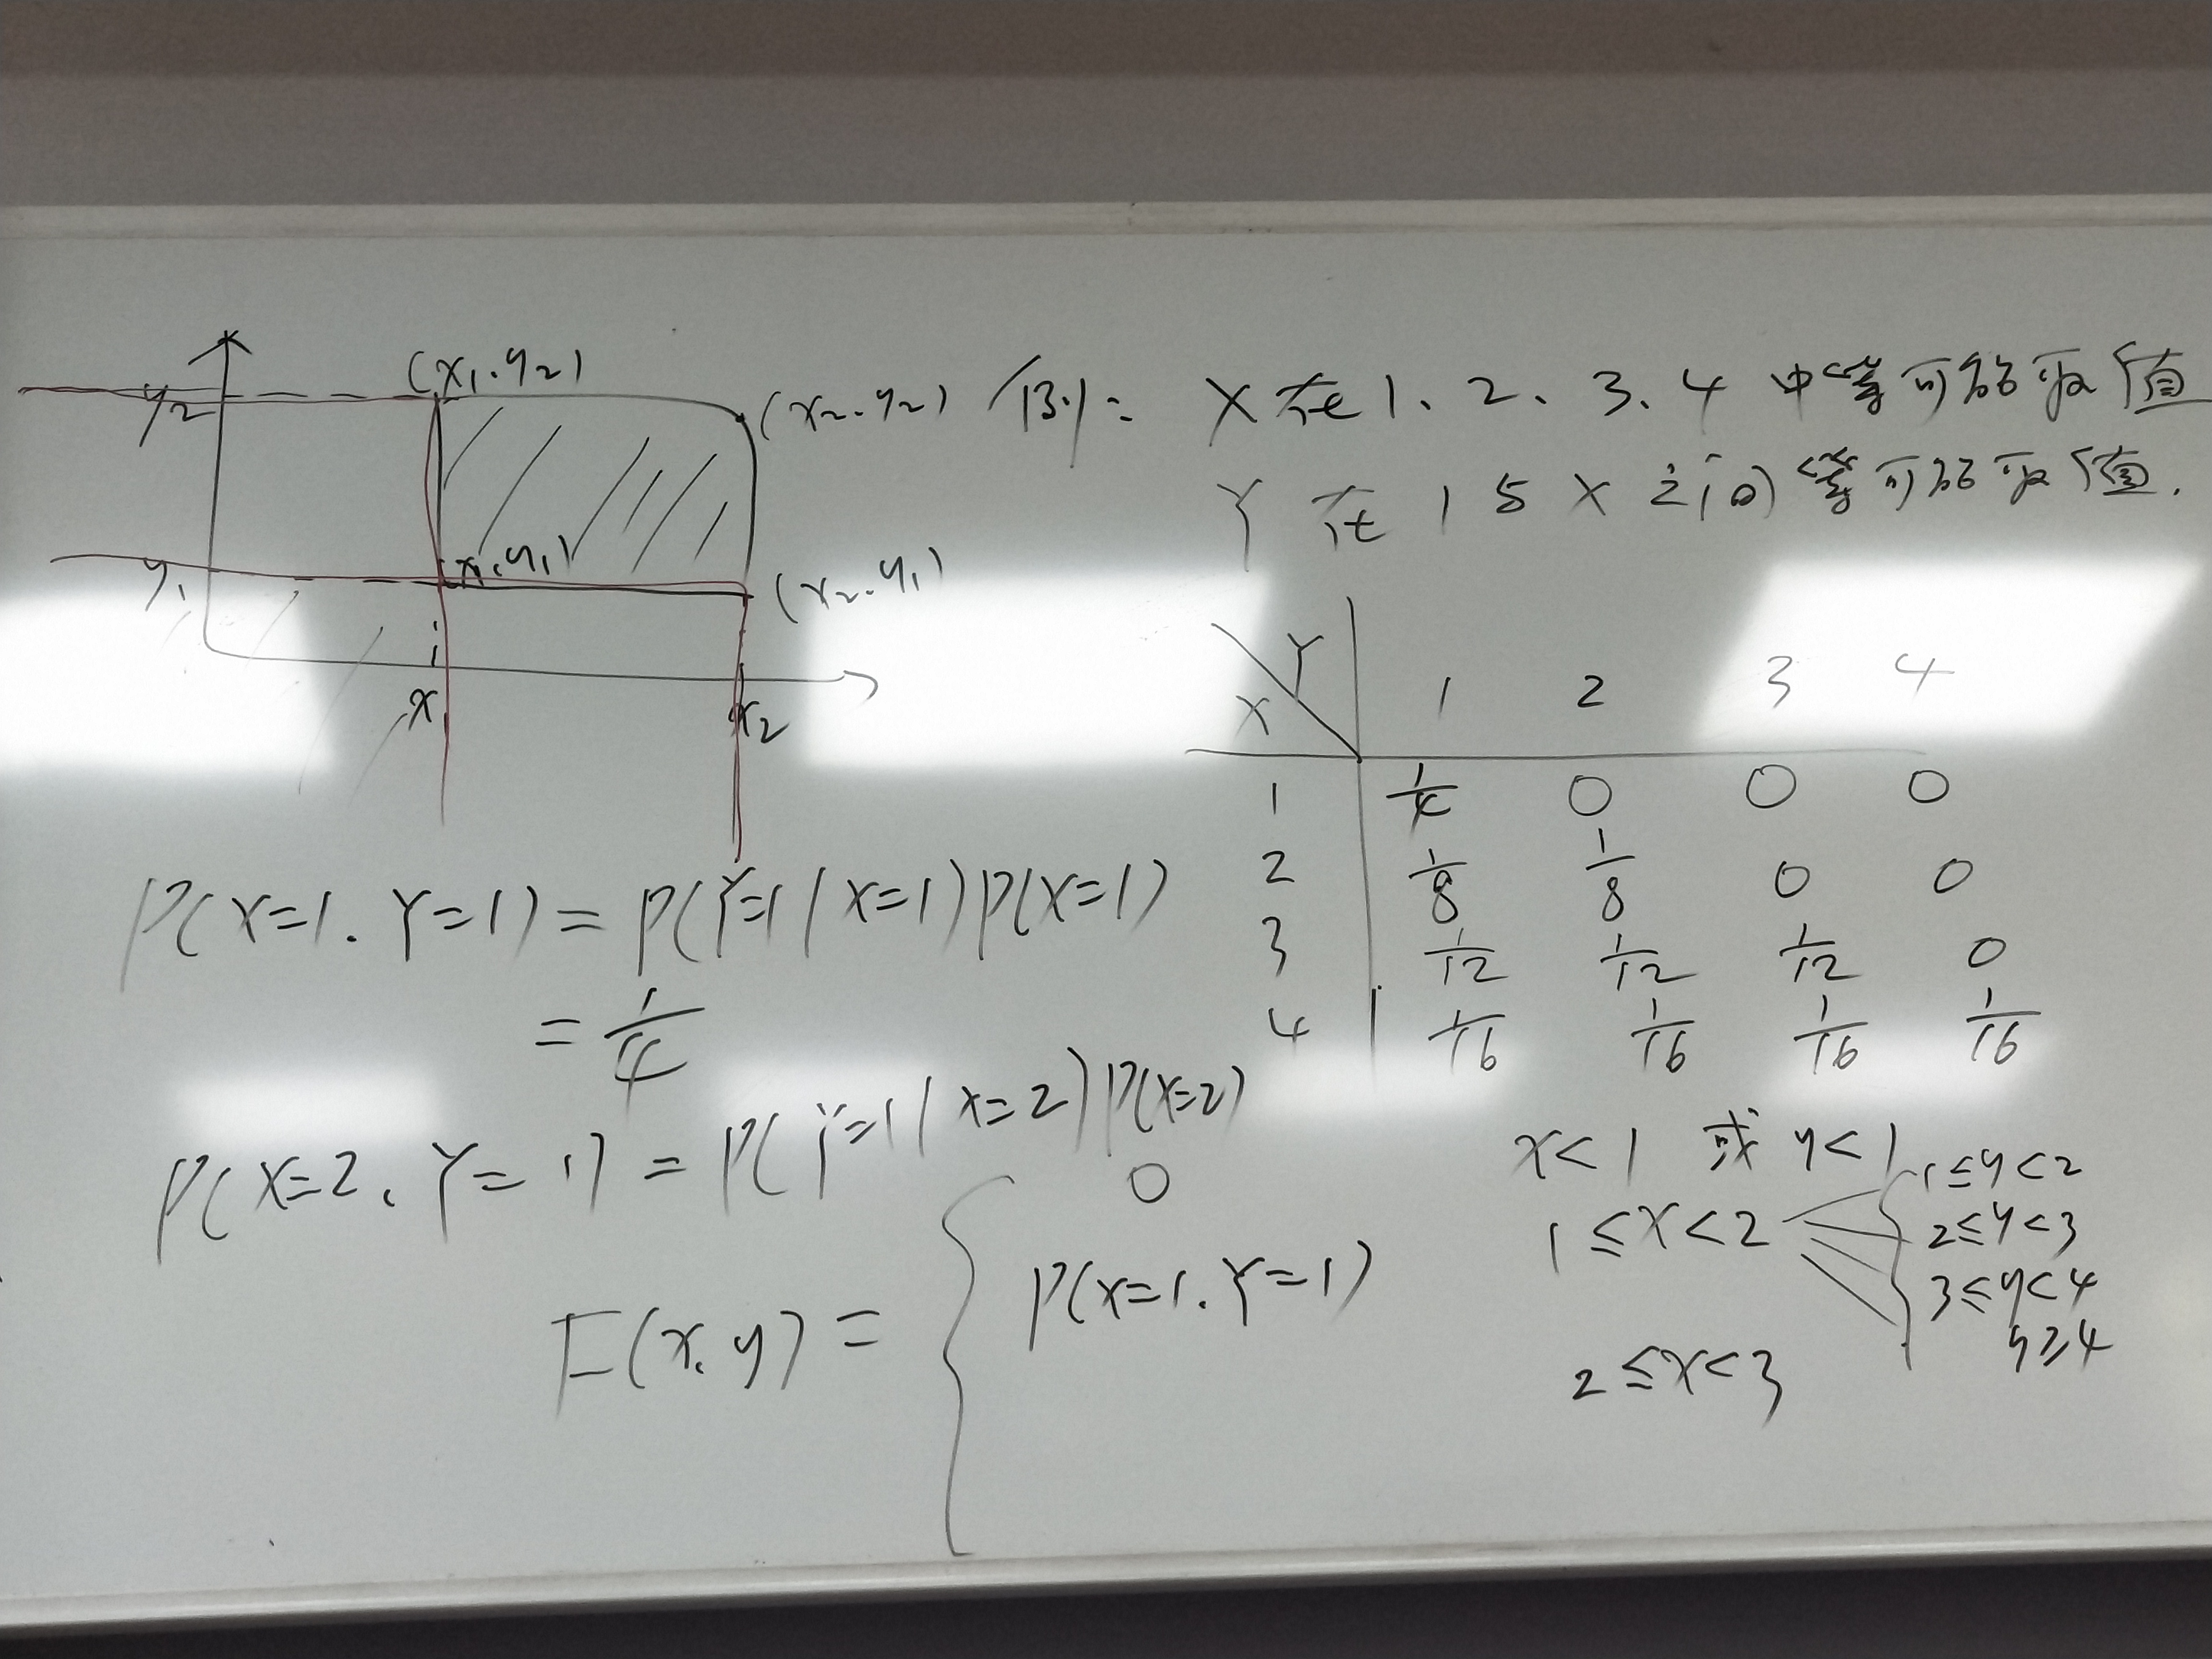 y₂
(x₁.y₂)
(x₂.y₂)
y₁
(x₁.y₁)
(x₂.y₁)
x₁
x₂
例: X在1、2、3、4中等可能取值
Y在1与X之间等可能取值.
Y
X 1 2 3 4
1 1/4 0 0 0
2 1/8 1/8 0 0
3 1/12 1/12 1/12 0
4 1/16 1/16 1/16 1/16
P(X=1.Y=1)=P(Y=1|X=1)P(X=1)
=1/4
P(X=2.Y=1)=P(Y=1|X=2)P(X=2)
F(x.y)= {
0 x<1 或 y<1
P(X=1.Y=1) 1≤x<2 { 1≤y<2
2≤y<3
3≤y<4
y≥4
2≤x<3